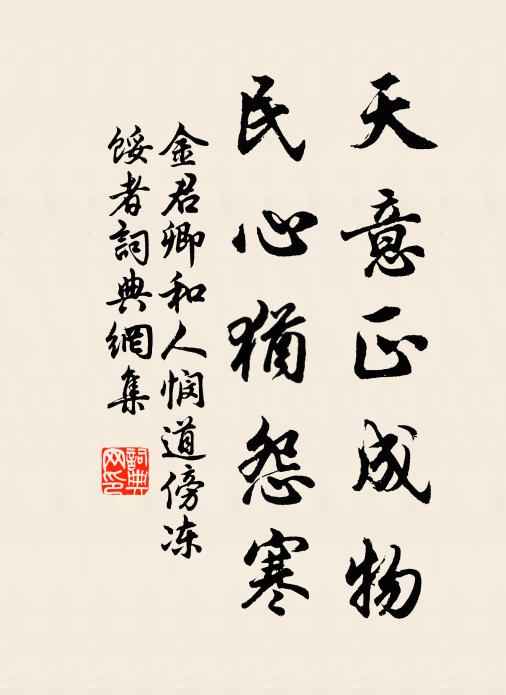 天意正成物
民心犹怨寒
金君卿和人悯道傍冻
馁者詞典網集
詞典网印